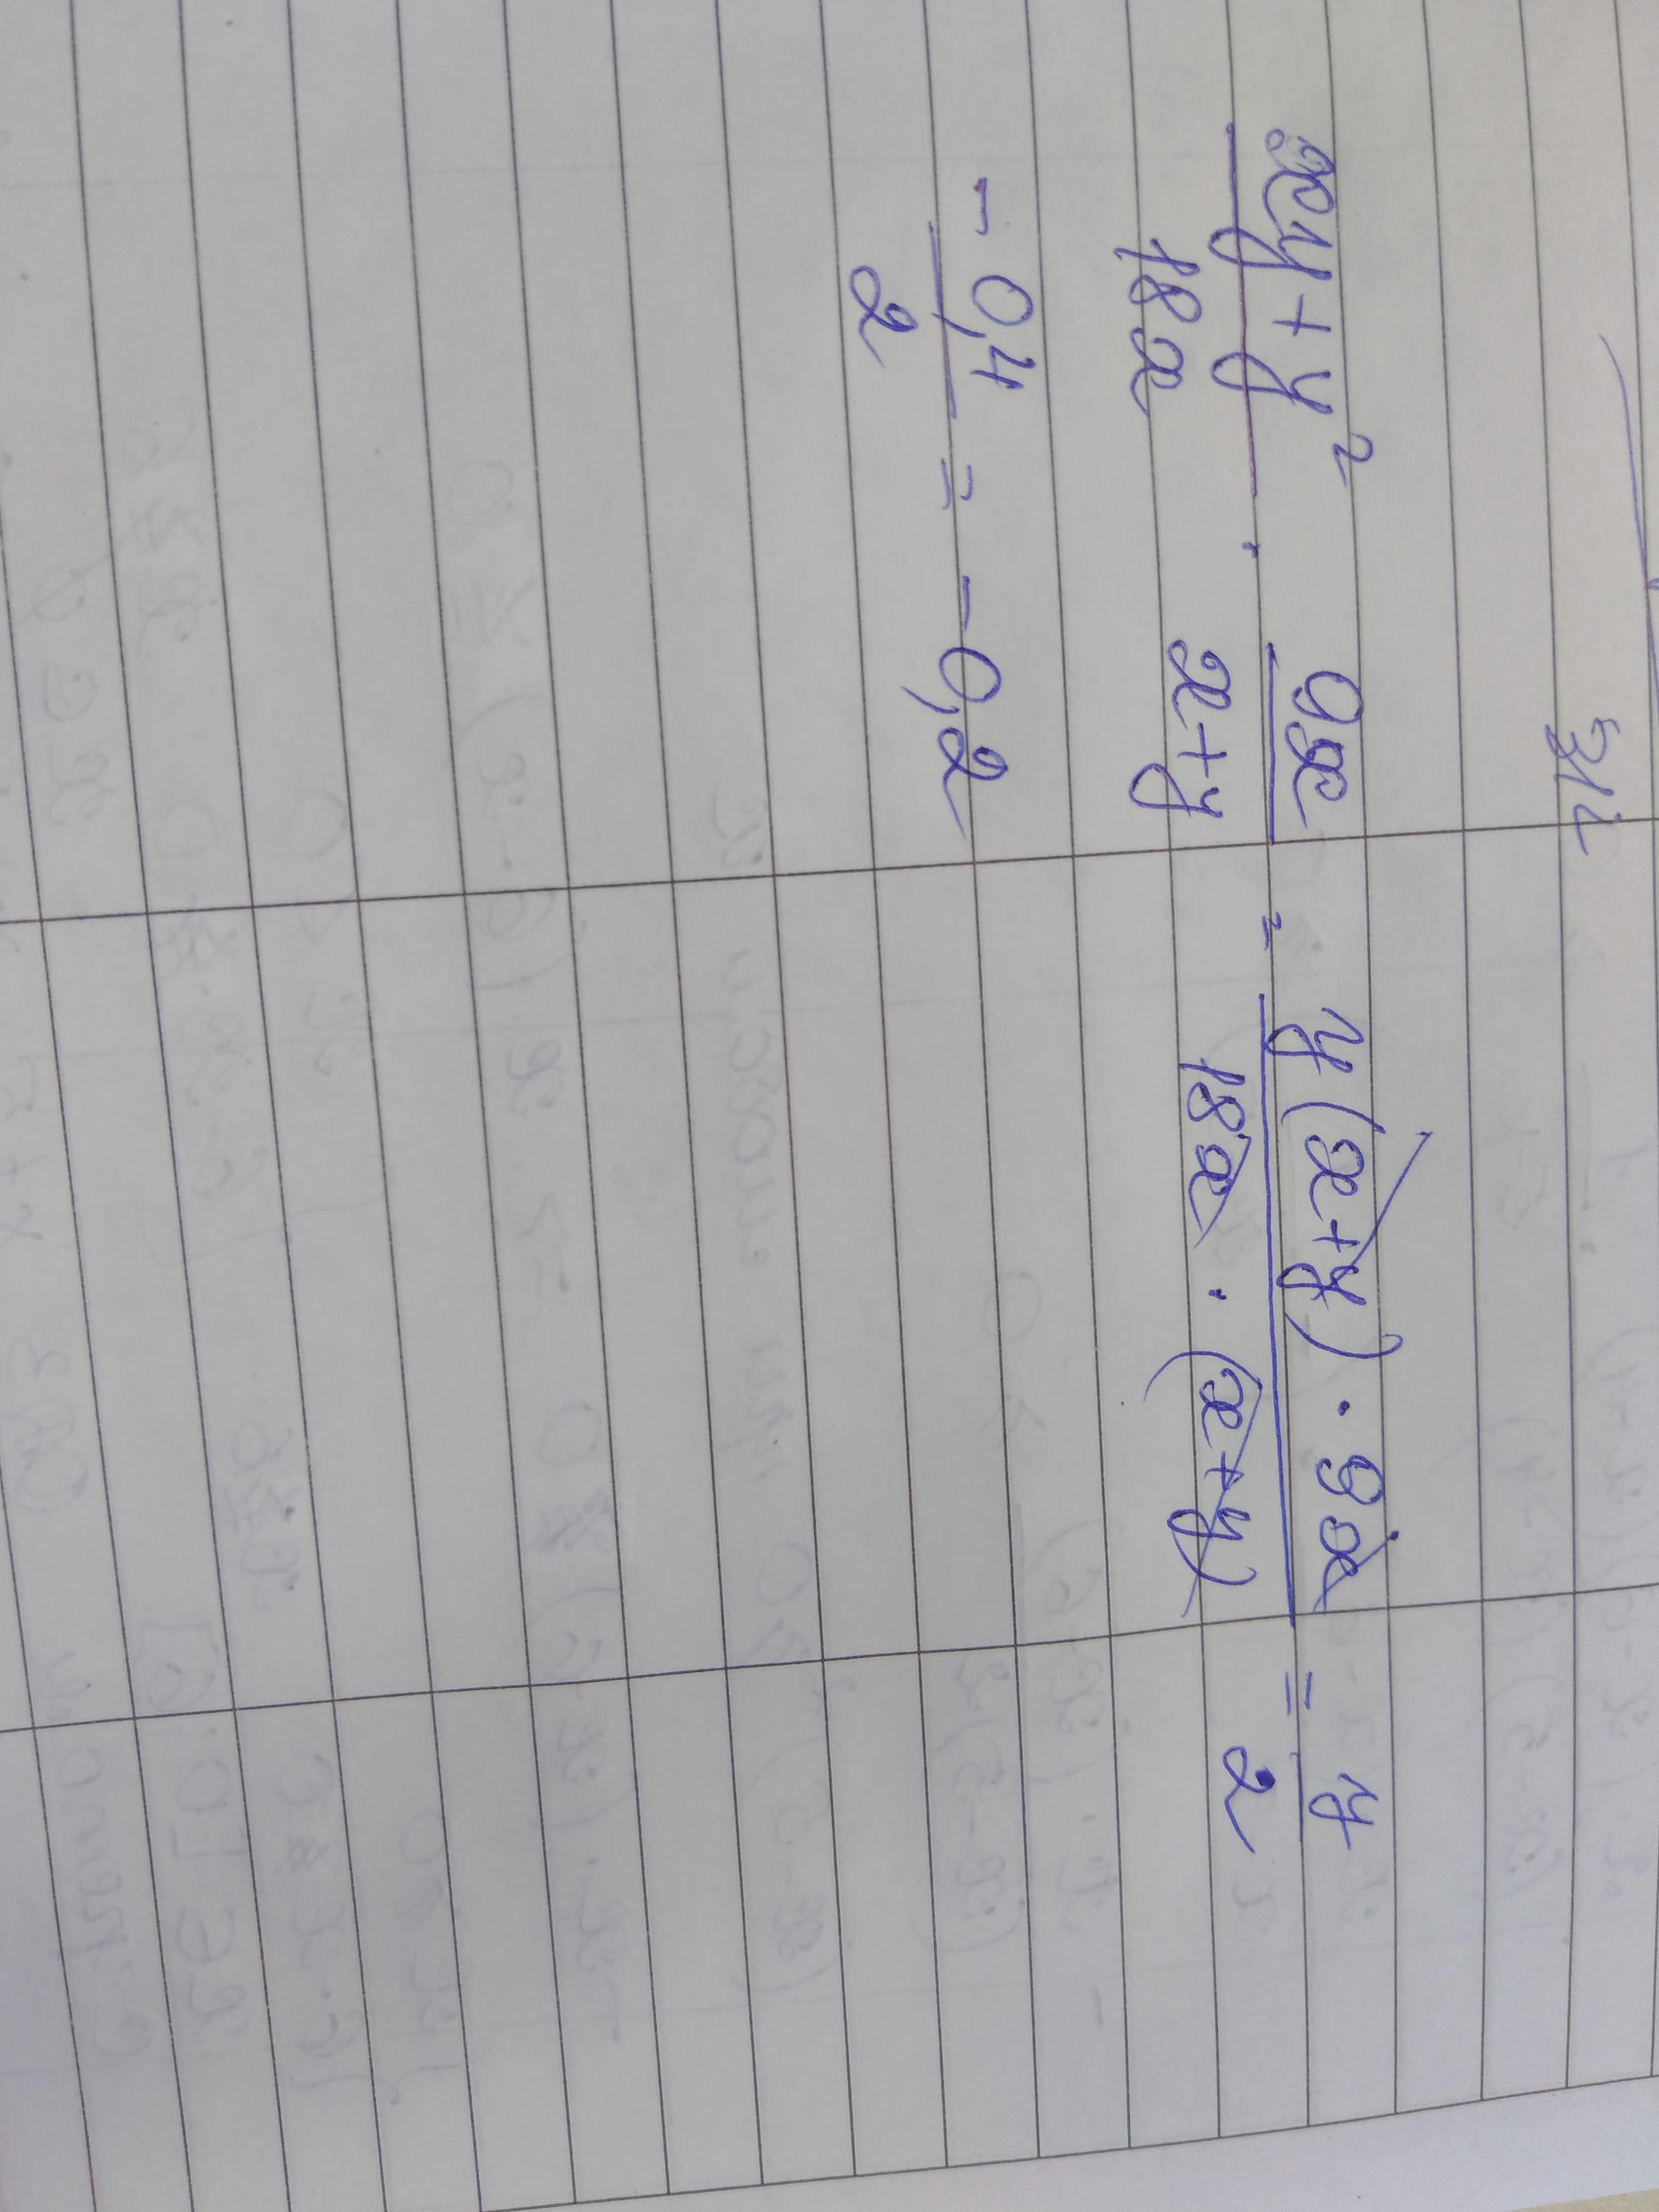 314
(xy+y²)/(18x) · (9x)/(x+y) = (y(x+y) · 9x)/(18x · (x+y)) = y/2
(-0,4)/2 = -0,2